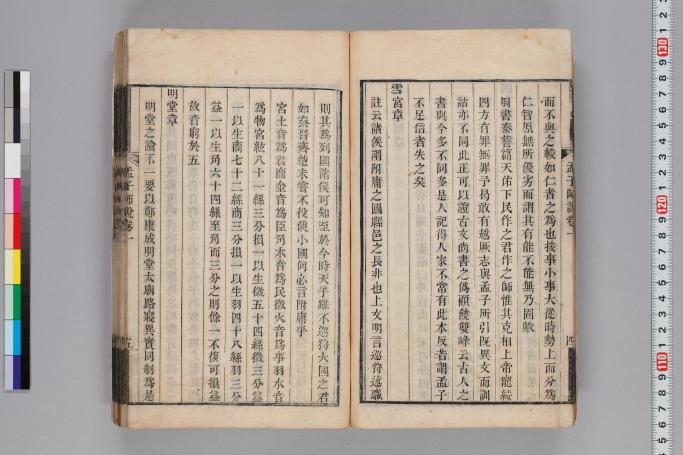 而不與之較如仁者之為也按事小事大從時勢上而分為
仁智原無所優劣而謂其有能不能無乃固歟
周書泰誓篇天佑下民作之君作之師惟其克相上帝寵綏
四方有罪無罪予曷敢有越厥志與孟子所引既異文而訓
詁亦不同此正可以證古文尚書之僞顧饒雙峰云古人之
書與今多不同多是人記得人家不常有此本反者謂孟子
不足信者失之矣
雪宮章
註云諸侯謂附庸之國縣邑之長非也上文明言巡狩述職
孟子師說卷一
四
則其為列國諸侯可知至於今時天子雖不巡狩大國之君
如秦晉齊楚未嘗不役使小國何必言附庸乎
宮土音為君商金音為臣角木音為民徵火音為事羽水音
為物宮絃八十一絲三分損一以生徵五十四絲徵三分益
一以生商七十二絲商三分損一以生羽四十八絲羽三分
益一以生角六十四絲至角而三分之則餘一不復可損益
故音窮於五
明堂章
明堂之論不一要以鄭康成明堂太廟路寢異實同制為是
孟子師說卷一
五